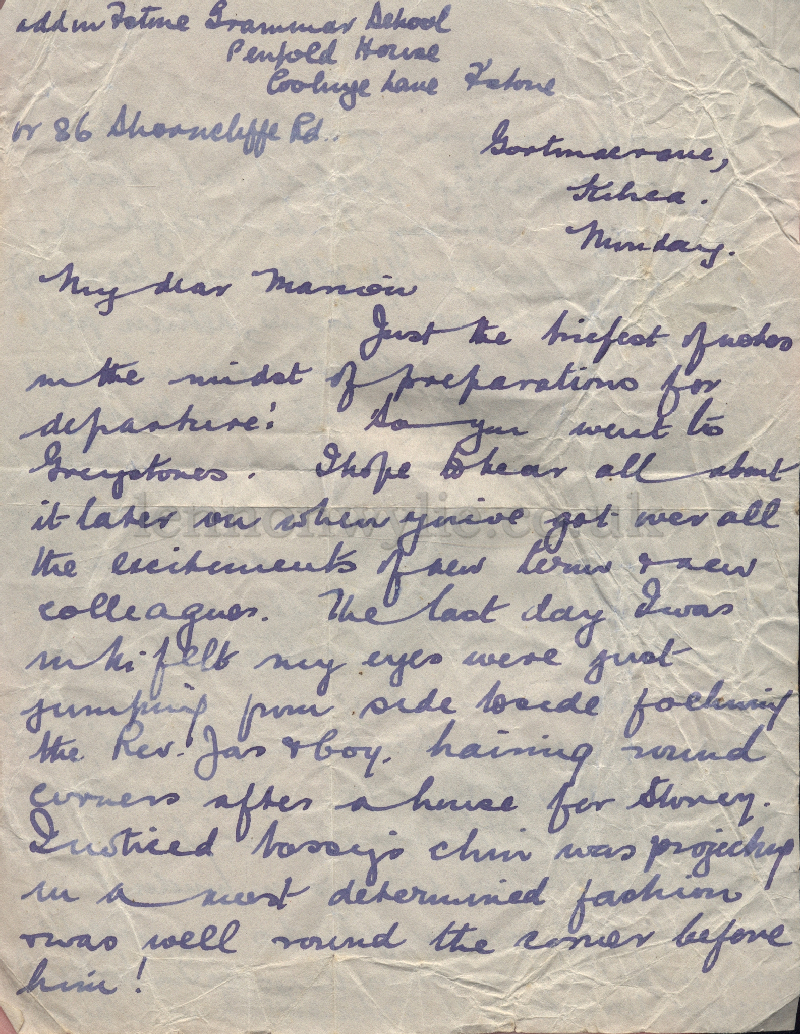 add in F'stone Grammar School
Penfold House
Coolinge Lane F'stone
or 86 Shorncliffe Rd.
Gortmacrane,
Kilrea.
Monday.
My dear Marion
Just the briefest of notes
in the midst of preparations for
departure! So you went to
Greystones. I hope to hear all about
it later on when you've got over all
the excitements of new term & new
colleagues. The last day I was
in ki felt my eyes were just
jumping from side to side following
the Rev. Jas & Coy. haring round
corners after a house for Storey.
I noticed bossy's chin was projecting
in a most determined fashion
& was well round the corner before
him!
lennonwylie.co.uk